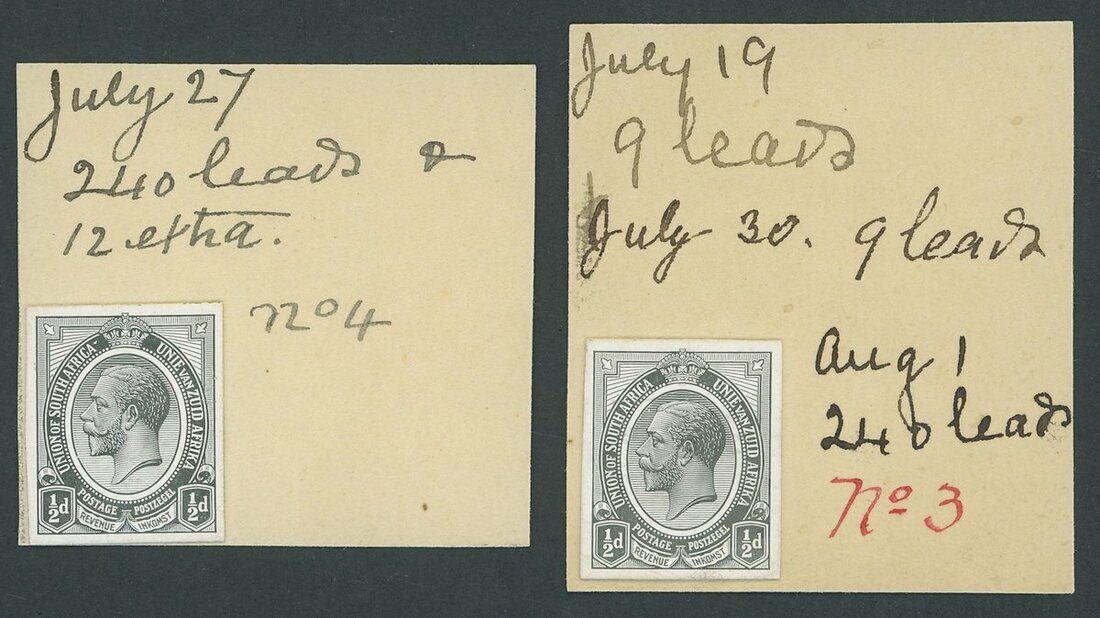 July 27
240 leads &
12 extra.
No 4
UNION OF SOUTH AFRICA UNIE VAN ZUID AFRIKA
½d POSTAGE POSTZEGEL ½d
REVENUE INKOMST
July 19
9 leads
July 30. 9 leads
Aug 1
240 leads
No 3
UNION OF SOUTH AFRICA UNIE VAN ZUID AFRIKA
½d POSTAGE POSTZEGEL ½d
REVENUE INKOMST